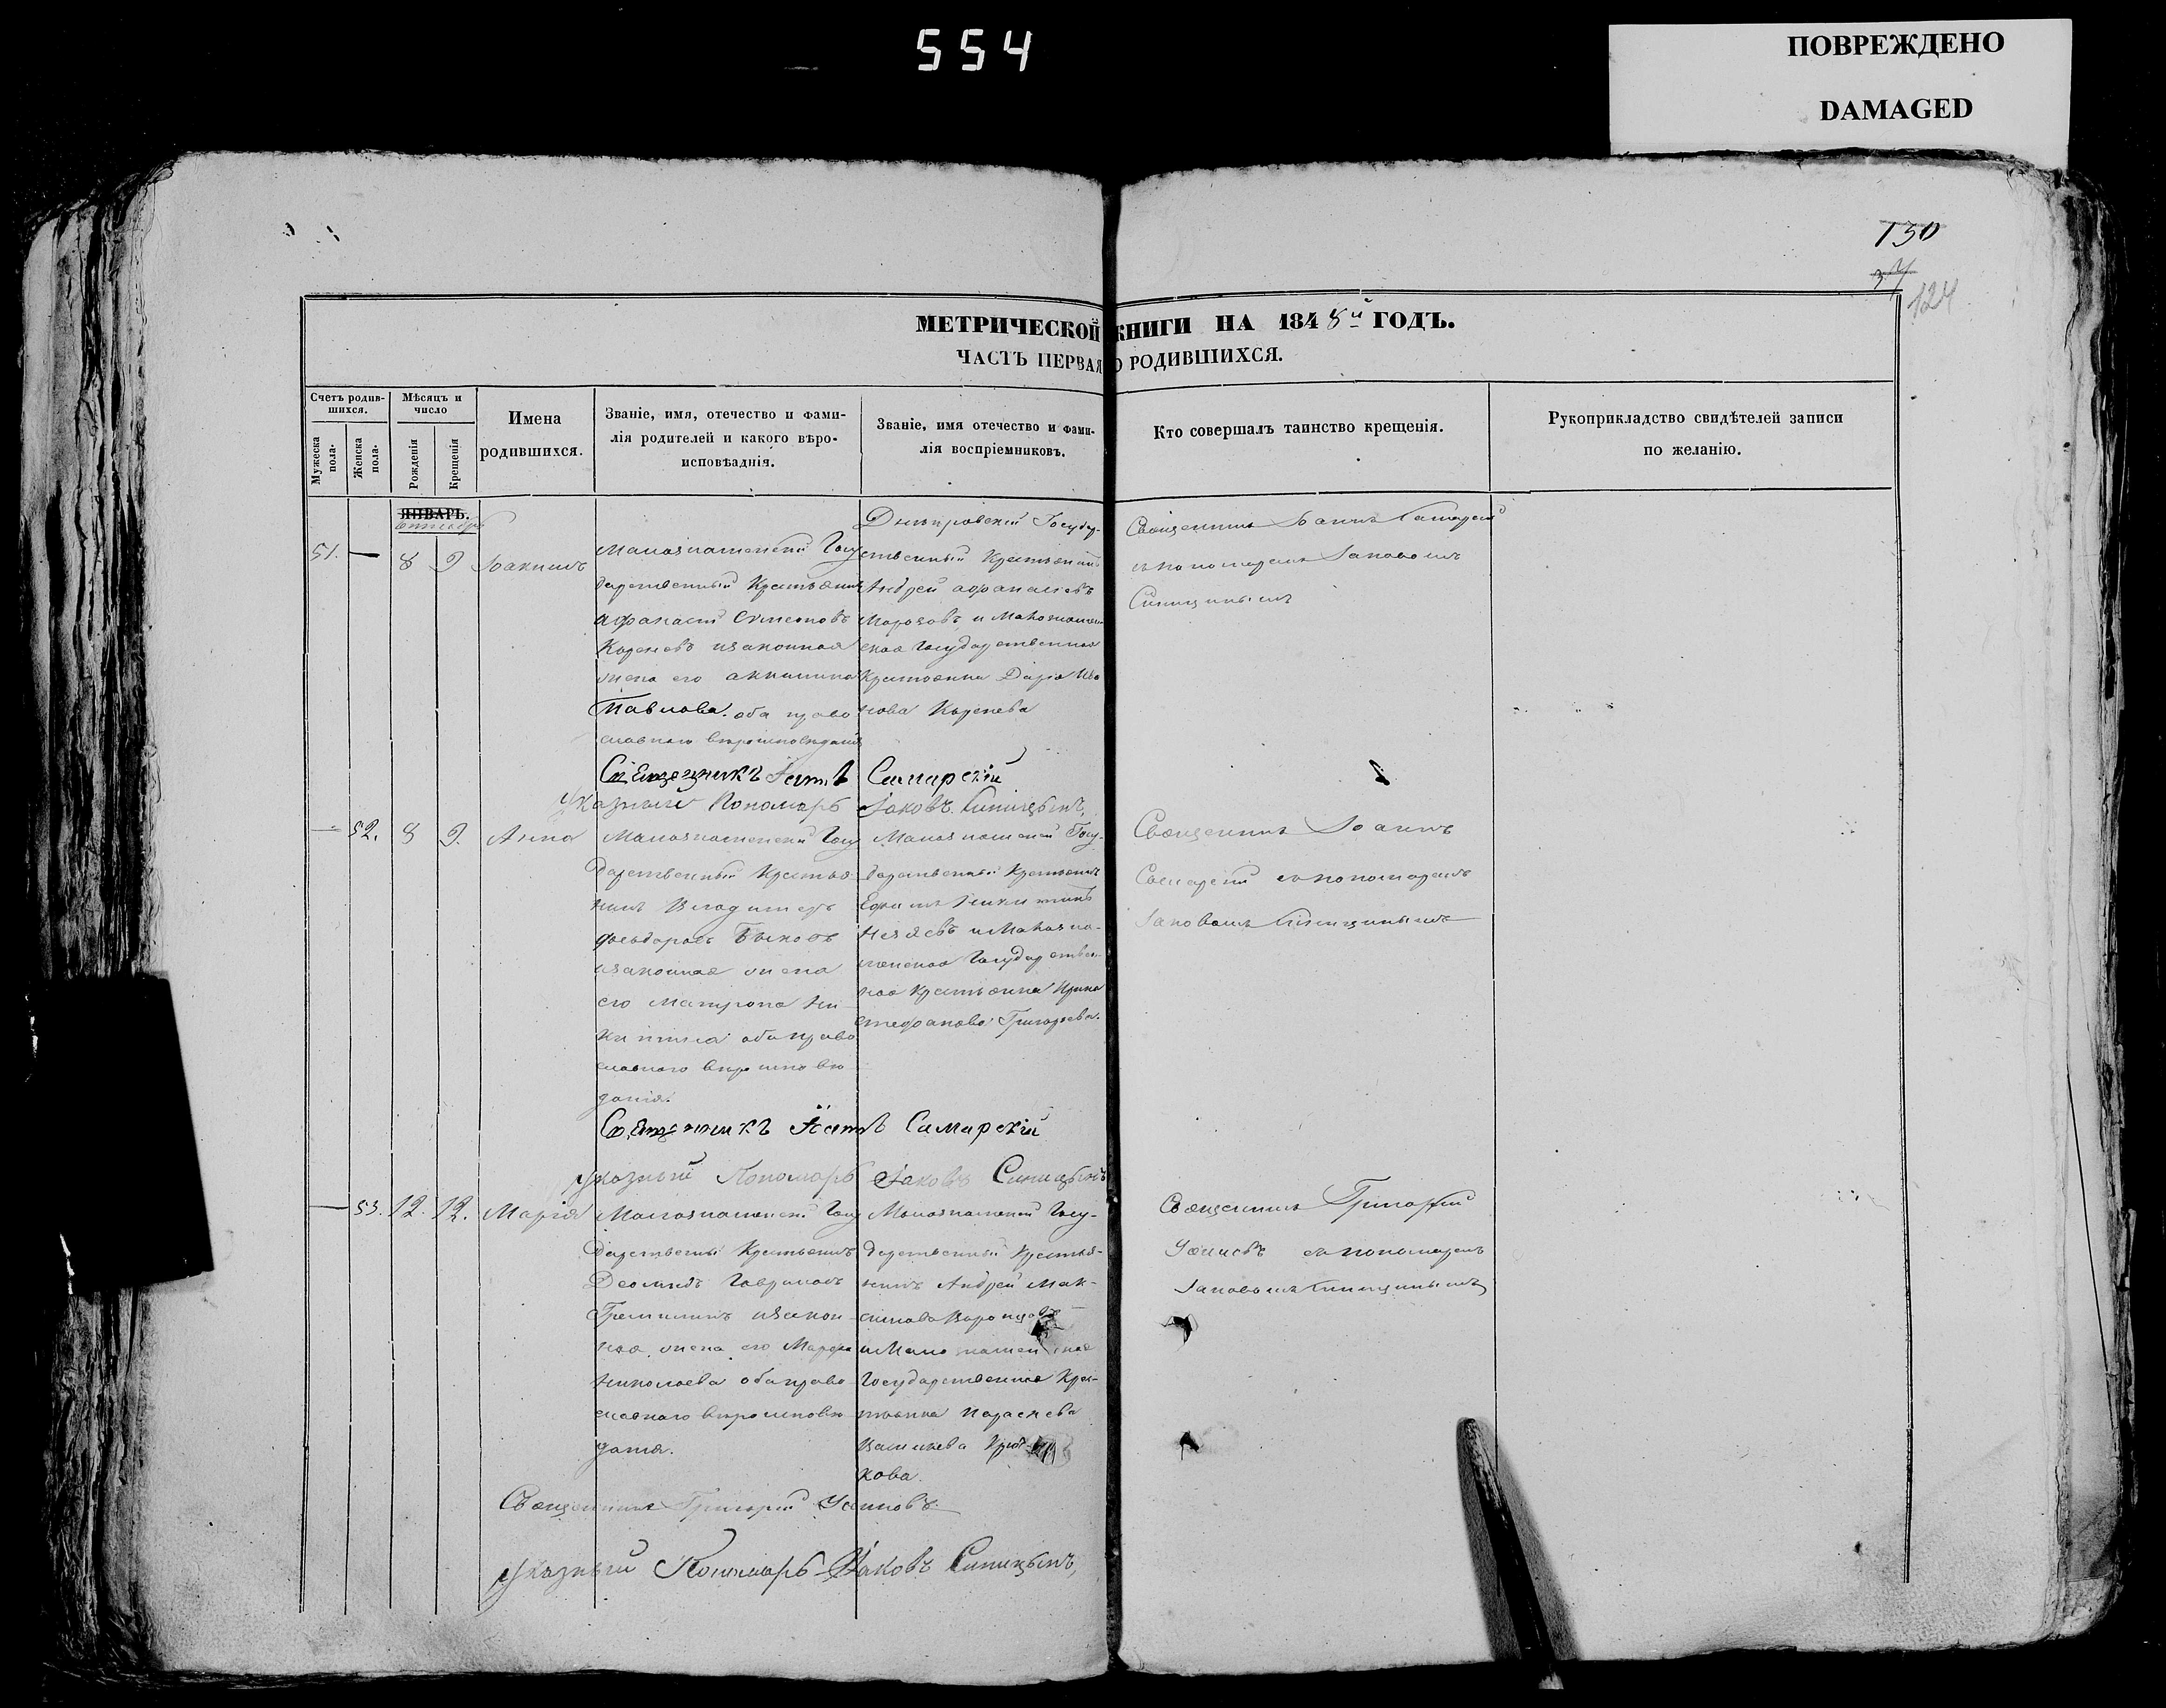 554
ПОВРЕЖДЕНО
DAMAGED
130
124
МЕТРИЧЕСКОЙ КНИГИ НА 1848й ГОДЪ.
ЧАСТЬ ПЕРВАЯ О РОДИВШИХСЯ.
Счетъ родив-
шихся.
Мужеска
пола.
Женска
пола.
Мѣсяцъ и
число
Рожденія
Крещенія
Имена
родившихся.
Званіе, имя, отечество и фами-
лія родителей и какого вѣро-
исповѣданія.
Званіе, имя отечество и фами-
лія воспріемниковъ.
Кто совершалъ таинство крещенія.
Рукоприкладство свидѣтелей записи
по желанію.
ЯНВАРЬ.
51. — 8 9 Іоакимъ
Малознаменскій Госу
дарственный Крестьянинъ
Афанасій Симеоновъ
Кореневъ изаконная
жена его акилина
Павлова. оба право
славнаго вѣроисповѣданія
Днѣпровскій Государ-
ственный Крестьянинъ
Андрей афанасьевъ
Морозовъ, и Малознамен
ская Государственная
Крестьянка Дарія Ива
нова Коренева
Священникъ Іоаннъ Самарскій
съ пономаремъ Іаковомъ
Синицинымъ
Священникъ Іоаннъ Самарскій
Указный Пономарь Іаковъ Синицынъ,
— 52. 8 9. Анна
Малознаменскій Госу
дарственный Крестья
нинъ Владимеръ
феодоровъ Быковъ
изаконная жена
его Матрона Ни
китина оба право
славнаго вѣроисповѣ
данія.
Малознаменскій Госу-
дарственный Крестьянинъ
Ефимъ Никитинъ
и Малозна-
менская Государствен-
ная Крестьянка Ирина
стефанова Григорьева.
Священникъ Іоаннъ
Самарскій съ пономаремъ
Іаковомъ Синицинымъ
Священникъ Іоаннъ Самарскій
Указный Пономарь Іаковъ Синицынъ
— 53. 12. 12. Марія
Малознаменскій Госу
дарственный Крестьянинъ
Гавриловъ
изакон
ная жена его Марфа
Николаева оба право
славнаго вѣроисповѣ
данія.
Малознаменскій Госу-
дарственный Крестья-
нинъ Андрей Мак-
симовъ
и Малознаменская
Государственная Крес-
тьянка Параскева
Васильева
кова.
Священникъ Григорій
съ пономаремъ
Іаковомъ Синицинымъ
Священникъ Григорій
Указный Пономарь Іаковъ Синицынъ,